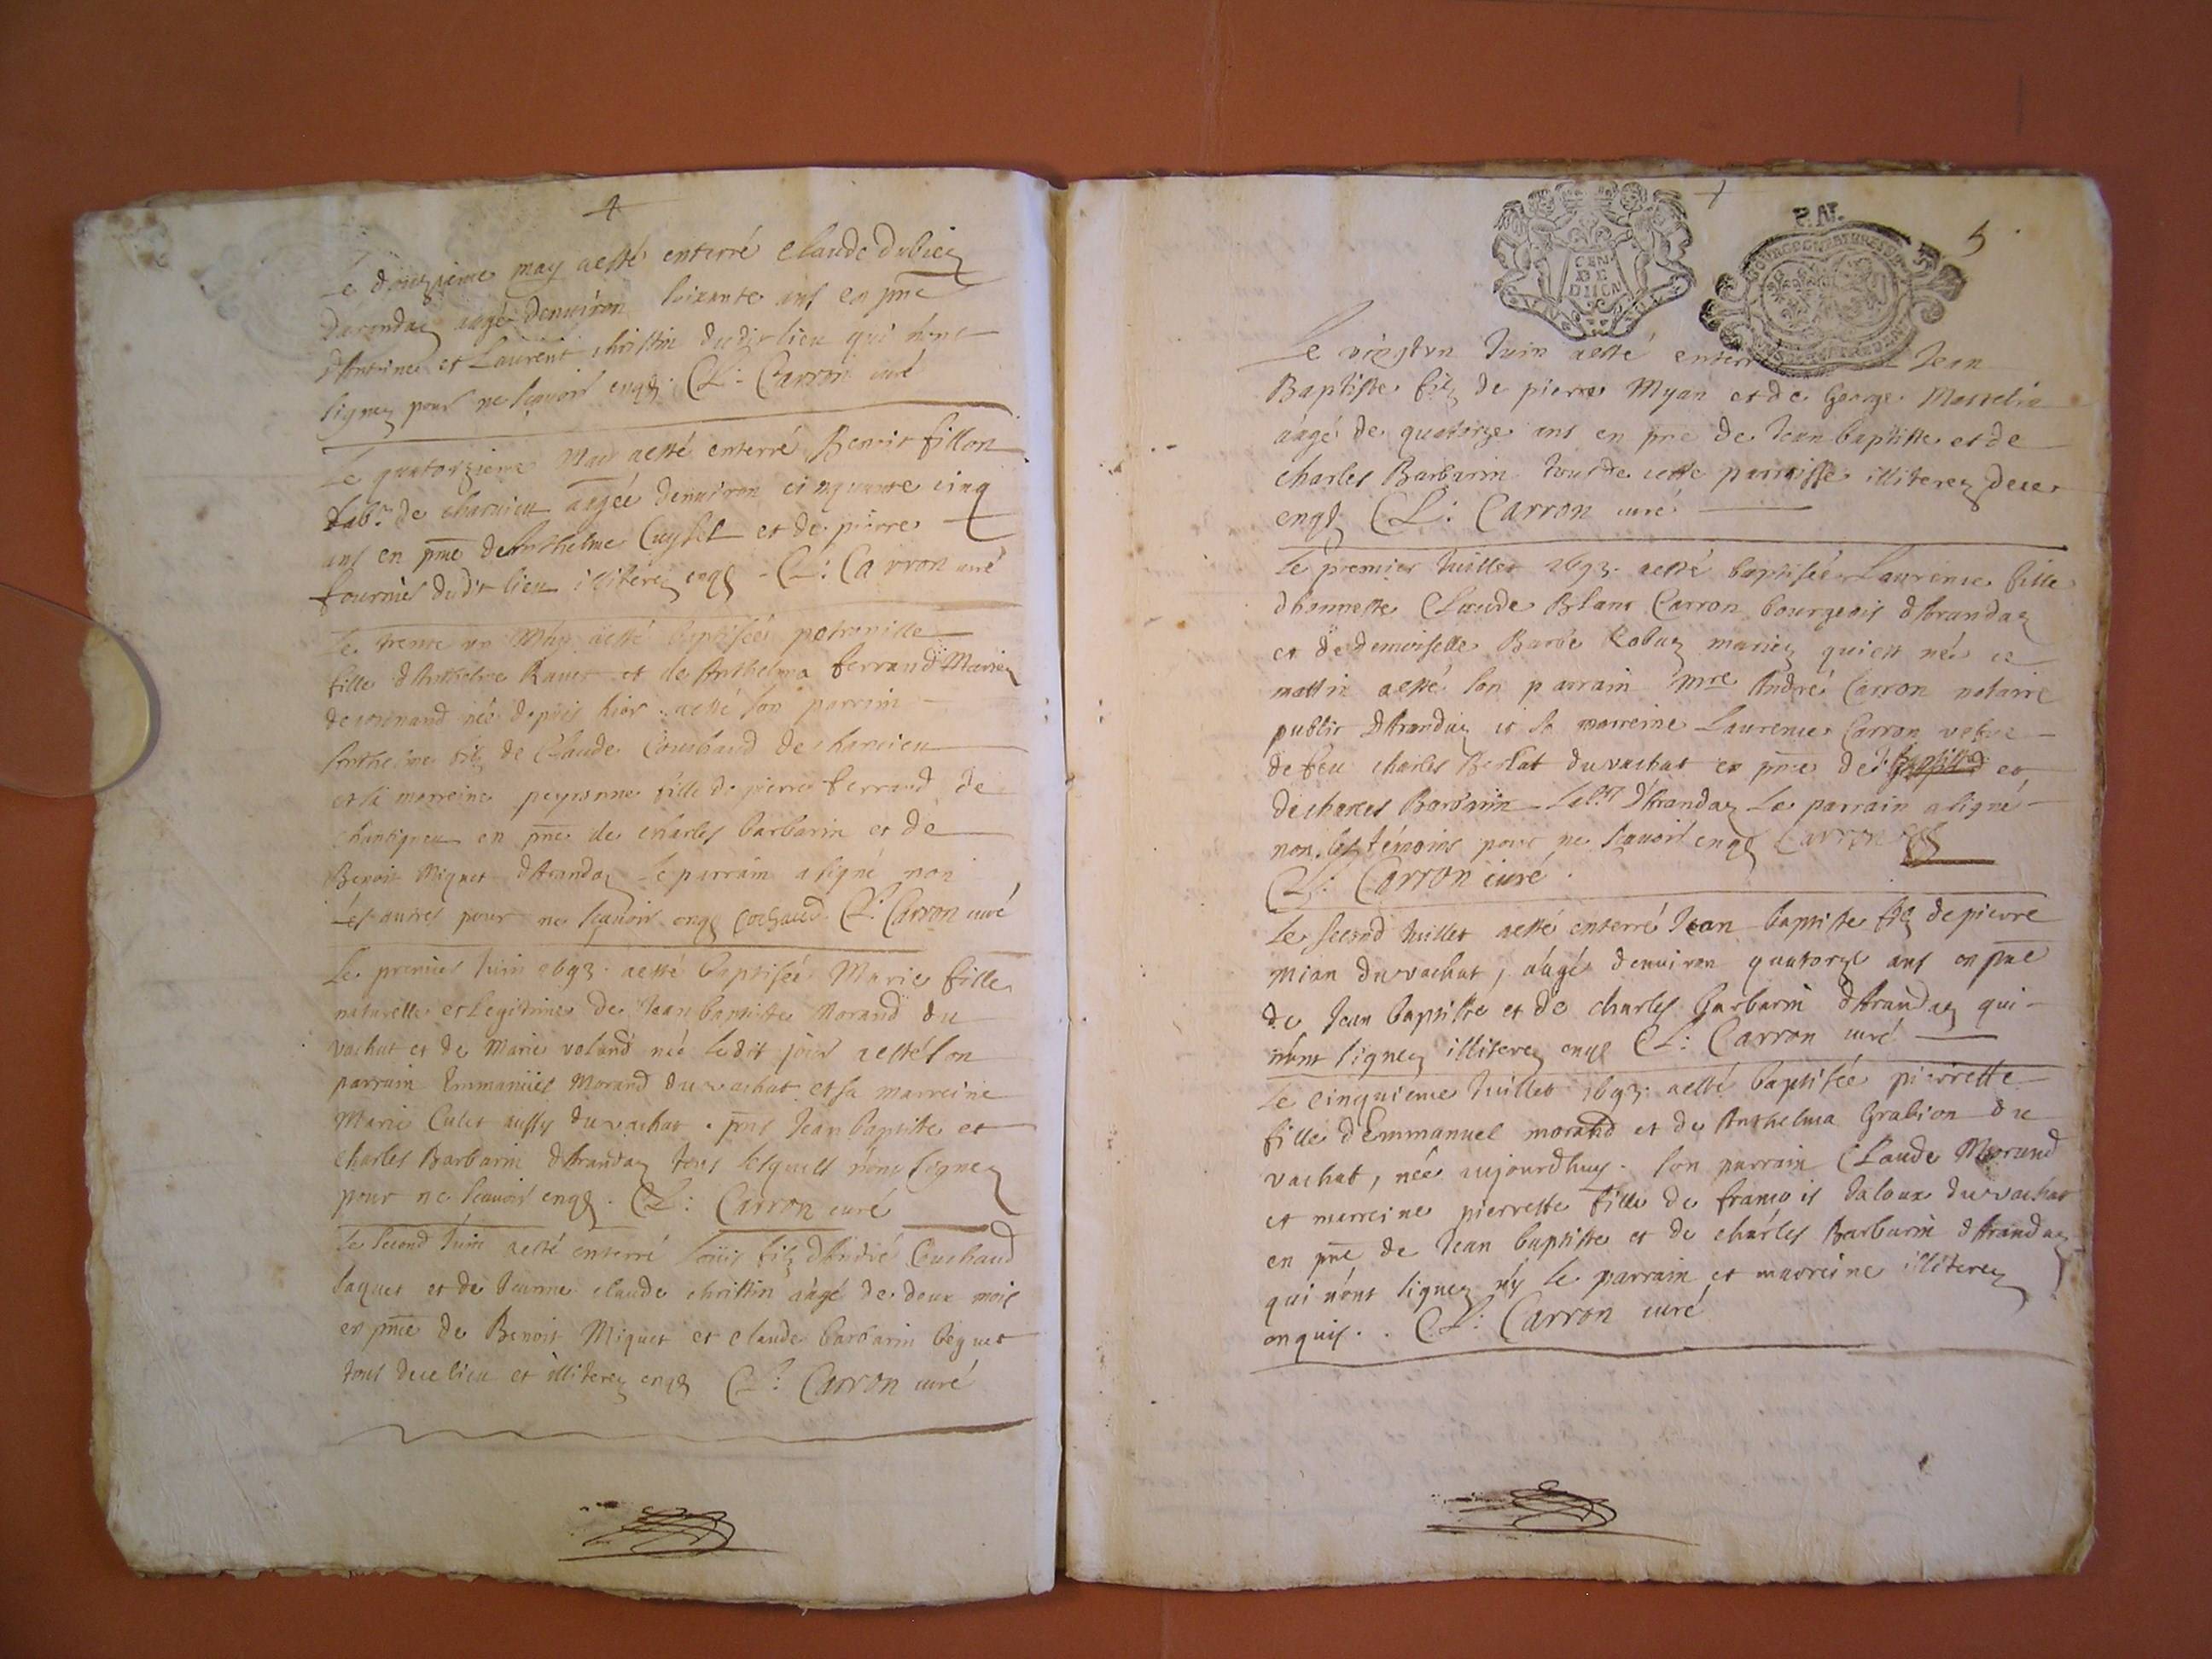 Le douzieme may aesté enterré Claude dubiez
darandaz aagé denuiron soixante ans en pnce
dAntoine et Laurent christin dudit lieu qui nont
signez pour ne sçauoir enqs. CL: Carron curé
Le quatorzieme May aesté enterré Benoit fillon
Labr. de charuieu aagée denuiron cinquante cinq
ans en pnce de Anthelme Cuysset et de pierre
fournier dudt lieu illiterez enqs - CL: Carron curé
Le trente vn May aesté baptisée petronille
fille dAnthelme Rauet et de Anthelma ferrand Mariez
de née depuis hier. aesté son parrain
Anthelme filz de Claude Couchaud de charuieu
et sa marreine peysonne fille de pierre ferrand de
Chantigneu en pnce de charles barbarin et de
Benoit Miquet dArandaz Le parrain a signé non
Les autres pour ne sçauoir enqs Cochaud CL: Carron curé
Le premier Juin 1693. aesté baptisée Marie fille
naturelle et Legitime de Jean baptiste Morand du
vachat et de Marie voland née ledit jour aesté son
parrain Emmanüel Morand du vachat et sa marreine
Marie Culet aussy du vachat. pnts Jean baptiste et
charles Barbarin dArandaz tous lesquels nont signez
pour ne sçauoir enqs. CL: Carron curé
Le second Juin aesté enterré Loüis filz dAndré Couchaud
baquet et de Jeanne claude christin aagé de deux mois
en pnce de Benoit Miquet et claude barbarin beguet
tous de ce lieu et illiterez enqs CL: Carron curé
5
GEN
DE
DIION
Le vingtvn Juin aesté enterré Jean
Baptiste filz de pierre Myan et de George
aagé de quatorze ans en pnce de Jean baptiste et de
charles Barbarin tous de cette parroisse illiterez de ce
enqs CL: Carron curé
Le premier Juillet 1693. aesté baptisée Laurence fille
dhonneste Claude Blanc Carron bourgeois dArandaz
et de demoiselle Barbe Robuz mariez qui est née ce
mattin aesté son parrain Mre André Carron notaire
public dArandaz et sa marreine Laurence Carron vefue
de feu charles Berlat du vachat en pnce de et
de charles Barbarin Labr. dArandaz Le parrain a signé
non les témoins pour ne sçauoir enqs Carron
CL: Carron curé.
Le second Juillet aesté enterré Jean baptiste filz de pierre
Mian du vachat, aagé denuiron quatorze ans en pnce
de Jean baptiste et de charles barbarin dArandaz qui
n'ont signez illiterez enqs CL: Carron curé
Le cinquieme Juillet 1693. aesté baptisée pierrette
fille dEmmanuel morand et de Anthelma Grabion du
vachat, née aujourdhuy. son parrain Claude Morand
et merreine pierrette fille de francois Jaloux du vachat
en pnce de Jean baptiste et de charles Barbarin dArandaz
qui n'ont signez n'y le parrain et marreine illiterez
enquis. . CL: Carron curé